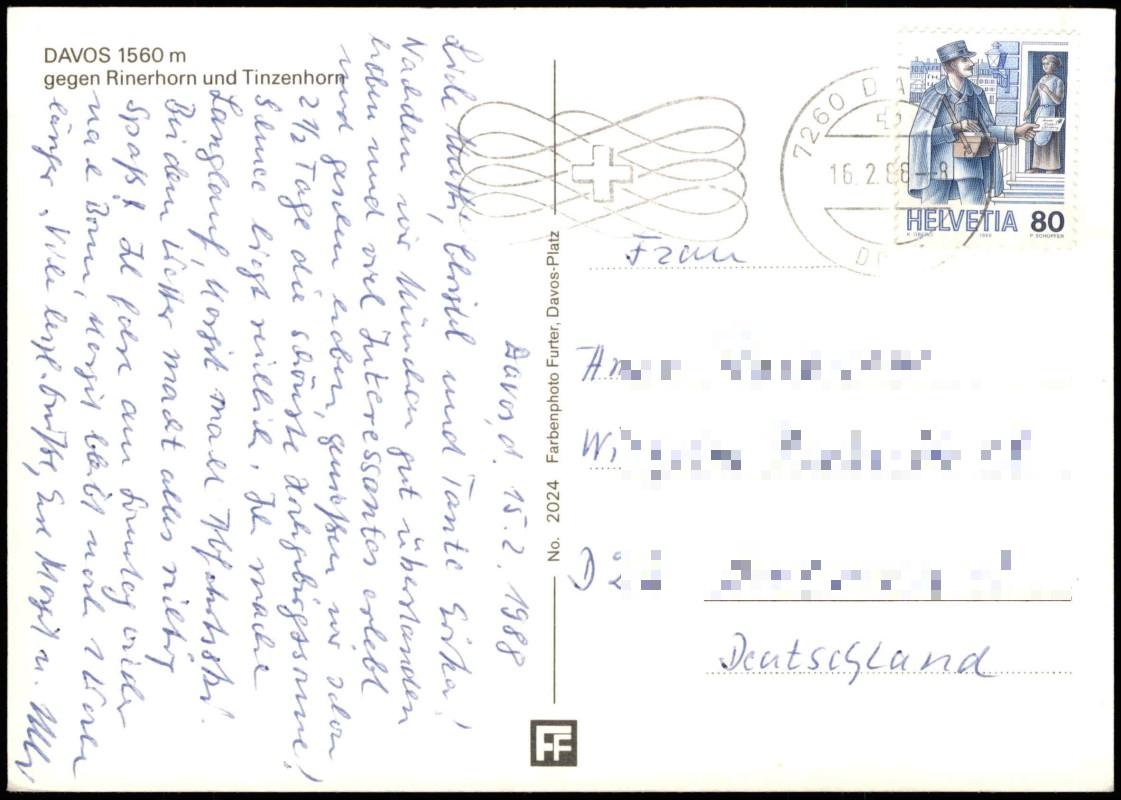 DAVOS 1560 m
gegen Rinerhorn und Tinzenhorn
Davos, d. 15.2.1988
Liebe Mutti, und Tante Erika!
Nachdem wir München gut überstanden
haben und viel Interessantes erlebt
und gesehen haben, genießen wir schon
2 1/2 Tage die schönste Hochgebirgssonne!
Schnee liegt reichlich. Ich mache
Langlauf, Margit macht Abfahrtski.
Bei dem Wetter macht alles richtig
Spaß! Ich fahre am Sonntag wieder
nach Bonn, Margit bleibt noch 1 Woche
länger. Viele herzl. Grüße, Eure Margit u.
No. 2024 Farbenphoto Furter, Davos-Platz
FF
7260 DA
16.2.88--8
HELVETIA 80
Frau
Deutschland